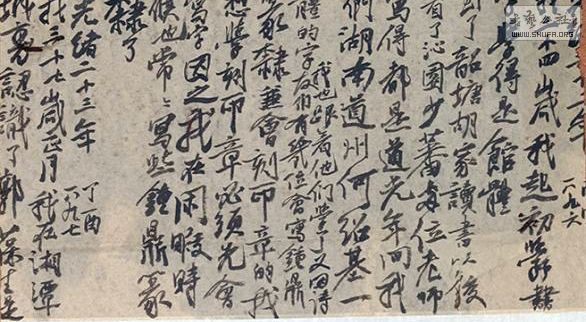 一八九六
十四歲我起初學
學得是館體
了韶塘胡家讀書以後
看了沁園少蕃两位老師
寫得都是道光年间我
們湖南道州何紹基一
體的字友们有幾位會寫鐘鼎
我也跟着他們學了又因詩
篆隸兼會刻印章的我
想學刻印章必須先會
寫字因之我在闲暇時
候也常〻寫些鐘鼎篆
隸了
光緒二十三年
丁酉
一八九七
我三十七歲正月我在湘潭
城裏認識了郭葆生
WWW.SHUFA.ORG